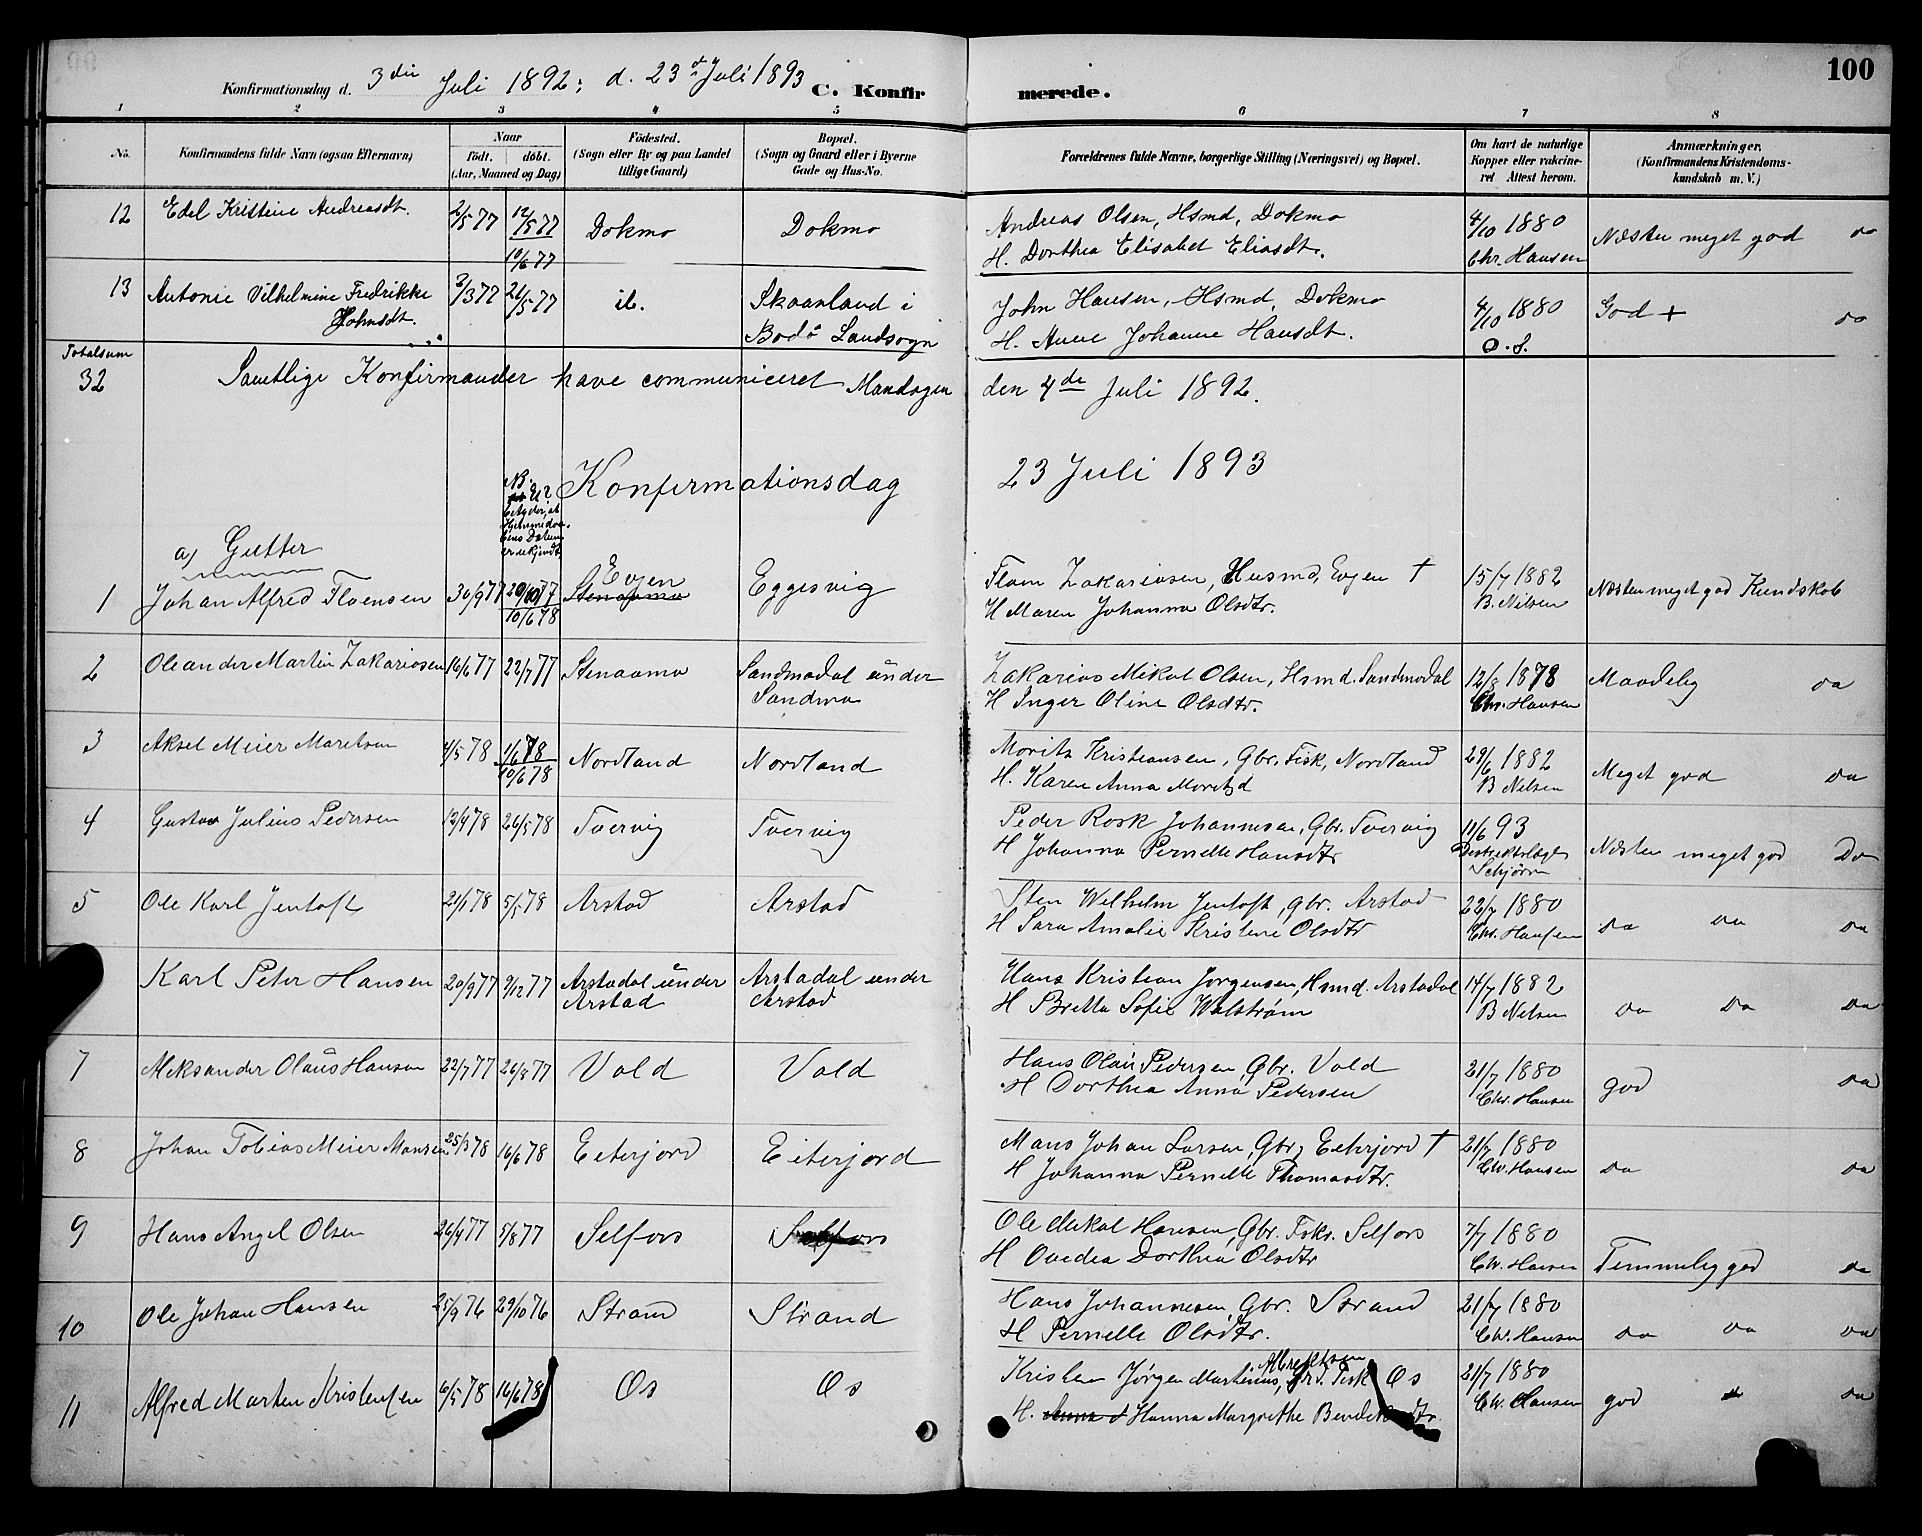 100
Konfirmationsdag d. 3die Juli 1892; d. 23de Juli 1893 C. Konfirmerede.
1 2 3 4 5 6 7 8
No. Konfirmandens fulde Navn (ogsaa Efternavn) Naar født. døbt. (Aar, Maaned og Dag) Fødested. (Sogn eller By og paa Landet tillige Gaard) Bopæl. (Sogn og Gaard eller i Byerne Gade og Hus-No. Forældrenes fulde Navne, borgerlige Stilling (Næringsvei) og Bopæl. Om havt de naturlige Kopper eller vakcineret Attest herom. Anmærkninger. (Konfirmandens Kristendomskundskab m. V.)
12 Edel Kristine Andreasdt. 2/5 77 12/5 77 Dokmo Dokmo Andreas Olsen, Hsmd, Dokmo 4/10 1880 Næsten meget god Do
10/6 77 H. Dorthea Elisabet Eliasdt. Chr. Hansen
13 Antonie Vilhelmine Fredrikke 3/3 77 21/5 77 ib. Skaanland i John Hansen, Hsmd, Dokmo 4/10 1880 God + Do
Johnsdt. Bodø Landsogn H. Anne Johanne Hansdt. O. S.
Totalsum
32 Samtlige Konfirmander have communiceret Mandagen den 4de Juli 1892.
Konfirmationsdag 23 Juli 1893
a) Gutter
1 Johan Alfred Floensen 30/9 77 20/10 77 Evjen Eggesvig Floen Zakariasen, Husmd, Evjen † 15/7 1882 Næsten meget god Kundskab
10/6 78 Stenaamo H Maren Johanna Olsdtr. B. Nilsen
2 Oleander Martin Zakariasen 16/6 77 22/7 77 Stenaamo Sandmodal under Zakarias Mikal Olsen, Hsmd. Sandmodal 12/8 1878 Maadelig Do
Sandmo H Inger Oline Olsdtr. Chr. Hansen
3 Aksel Meier Moritsen 4/5 78 1/6 78 Nordland Nordland Moritz Kristiansen, Gbr. Fisk, Nordland 29/6 1882 Meget god Do
10/6 78 H. Karen Anna Moritzd B Nilsen
4 Gustav Julius Pedersen 12/4 78 26/5 78 Tvervig Tvervig Peder Rosk Johannesen, Gbr. Tvervig 11/6 93 Næsten meget god Do
H Johanna Pernelle Hansdtr Distriktslæge Schjørn
5 Ole Karl Jentoft 21/1 78 5/5 78 Arstad Arstad Sten Wilhelm Jentoft, gbr. Arstad 22/7 1880 Do Do Do
H Sara Amalie Kristine Olsdtr Chr. Hansen
Karl Peter Hansen 20/9 77 9/12 77 Arstadal under Arstadal under Hans Kristian Jørgensen, Hsmd. Arstadal 14/7 1882 Do Do Do
Arstad Arstad H Britta Sofie Walstrøm B Nilsen
7 Aleksander Olaus Hansen 22/7 77 26/8 77 Vold Vold Hans Olaus Pedersen, Gbr. Vold 21/7 1880 god Do
H Dorthea Anna Pedersen Chr. Hansen
8 Johan Tobias Meier Mansen 25/3 78 16/6 78 Eiterjord Eiterjord Mans Johan Larsen, Gbr, Eiterjord † 21/7 1880 Do Do
H Johanna Pernelle Thomasdtr. Chr. Hansen
9 Hans Angel Olsen 26/4 77 5/8 77 Selfors Selfors Ole Mikal Hansen, Gbr. Fsk. Selfors 7/7 1880 Temmelig god Do
H Ovedia Dorthea Olsdtr Chr. Hansen
10 Ole Johan Hansen 25/9 76 29/10 76 Strand Strand Hans Johannesen Gbr. Strand 21/7 1880 Do Do Do
H Pernelle Olsdtr. Chr. Hansen
11 Alfred Marten Kristensen 6/5 78 16/6 78 Os Os Kristen Jørgen Martinus Albrektsen, Gbr. Fisk Os 21/7 1880 god Do
H. Anna Hanna Margrethe Bendiksdtr. Chr. Hansen